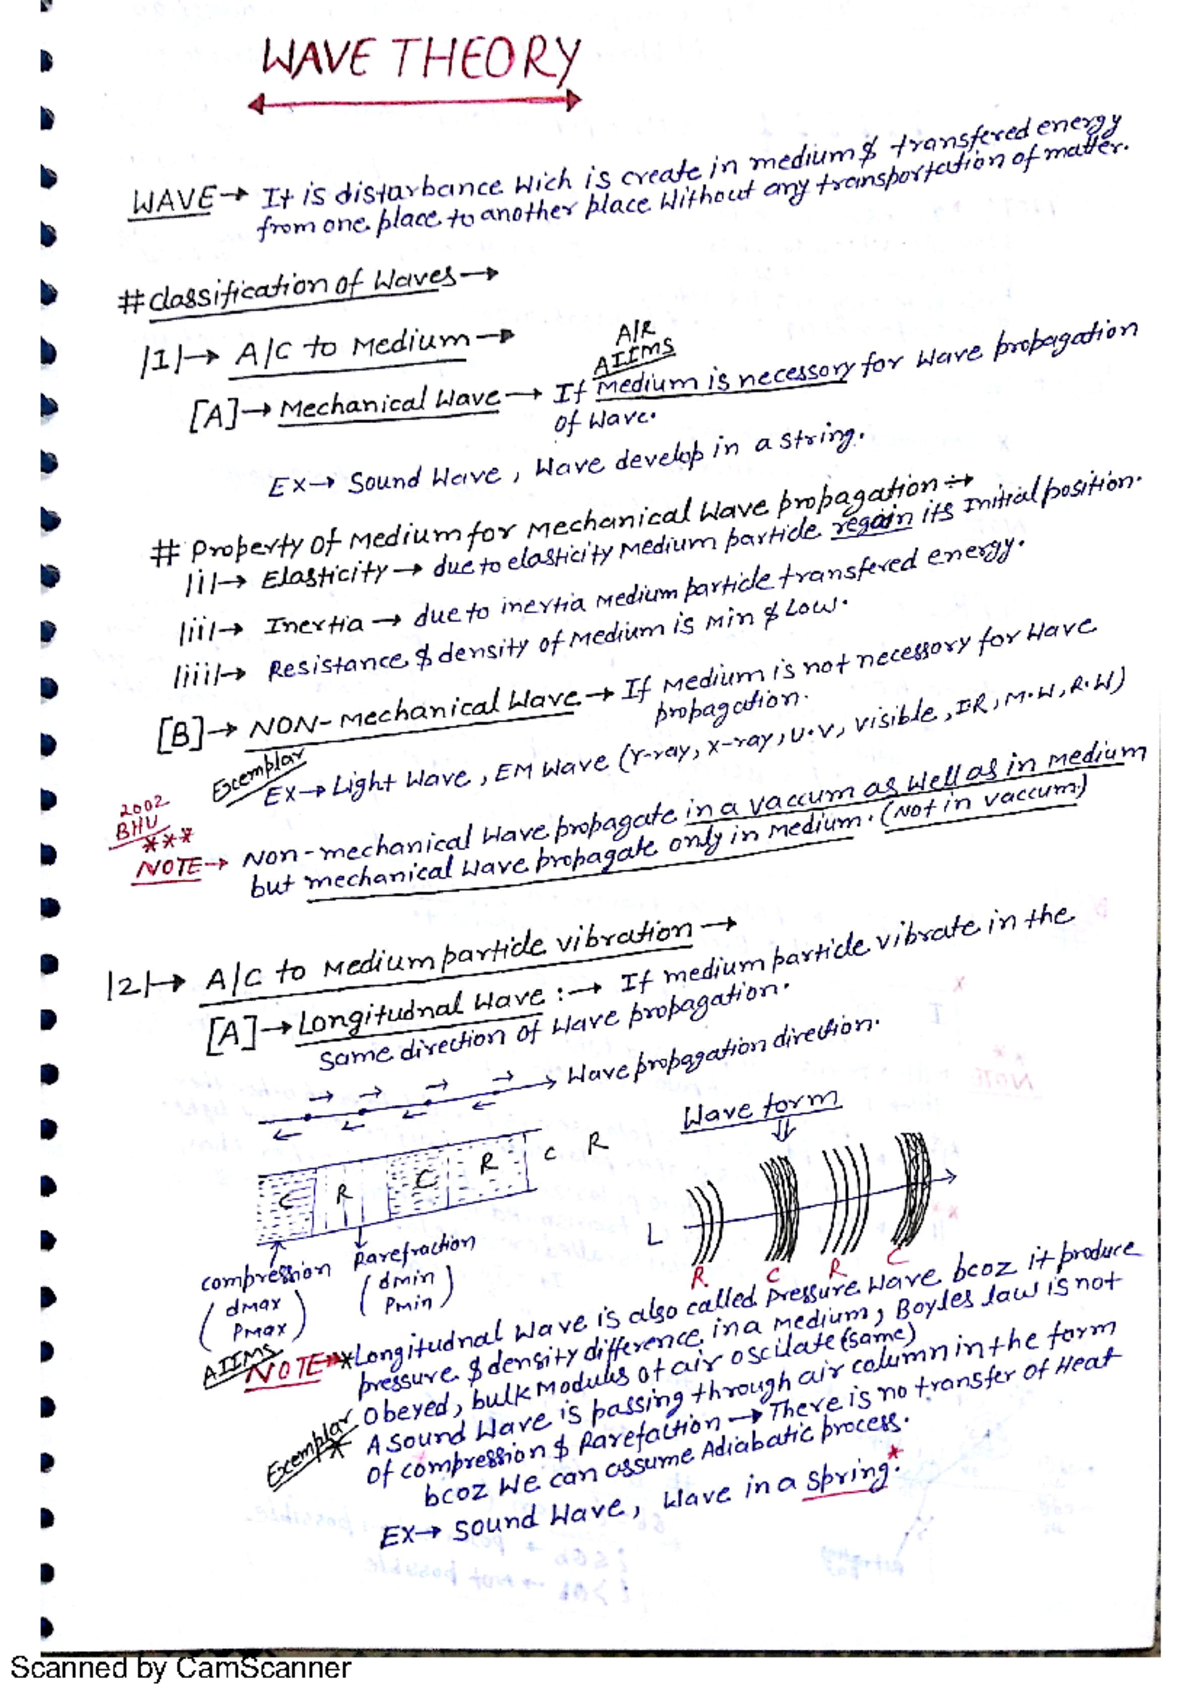 WAVE THEORY
WAVE → It is disturbance Wich is create in medium & transfered energy
from one place to another place Without any transportation of matter.
# Classification of Waves →
|1|→ A/C to Medium →
A/R
AIIMS
[A]→ Mechanical Wave → If Medium is necessory for Wave propagation
of Wave.
Ex→ Sound Wave, Wave develop in a string.
# Property of Medium for Mechanical Wave propagation ÷→
|i|→ Elasticity → due to elasticity Medium particle regain its Initial position.
|ii|→ Inertia → due to inertia Medium particle transfered energy.
|iii|→ Resistance & density of Medium is Min & Low.
[B]→ NON-Mechanical Wave → If Medium is not necessory for Wave
propagation.
Excemplar
Ex→ Light Wave, EM Wave (γ-ray, X-ray, U.V, Visible, IR, M.W, R.W)
2002
BHU
***
NOTE → Non-mechanical Wave propagate in a vaccum as well as in medium
but mechanical Wave propagate only in Medium. (Not in vaccum)
|2|→ A/C to Medium particle vibration →
[A]→ Longitudnal Wave :→ If medium particle vibrate in the
Same direction of Wave propagation.
Wave propagation direction.
Wave form
C R C R C R
L
R C R C
Compression Rarefraction
(dmax Pmax) (dmin Pmin)
AIIMS
NOTE→* Longitudnal Wave is also called Pressure Wave bcoz it produce
pressure & density difference in a medium, Boyles law is not
Obeyed, bulk Modulus of air oscilate (same)
Excemplar
* A Sound Wave is passing through air column in the form
of compression & Rarefaction → There is no transfer of Heat
bcoz We can assume Adiabatic process.
Ex→ Sound Wave, Wave in a spring.*
Scanned by CamScanner